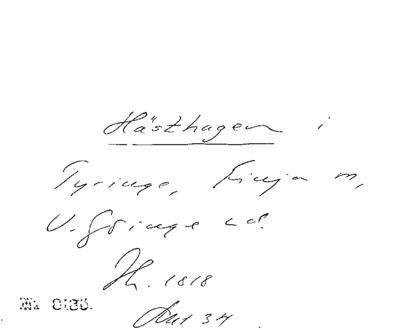 Hästhagen i
Tyringe, Finja m,
V. Göinge hd.
Jh. 1818
Akt 34